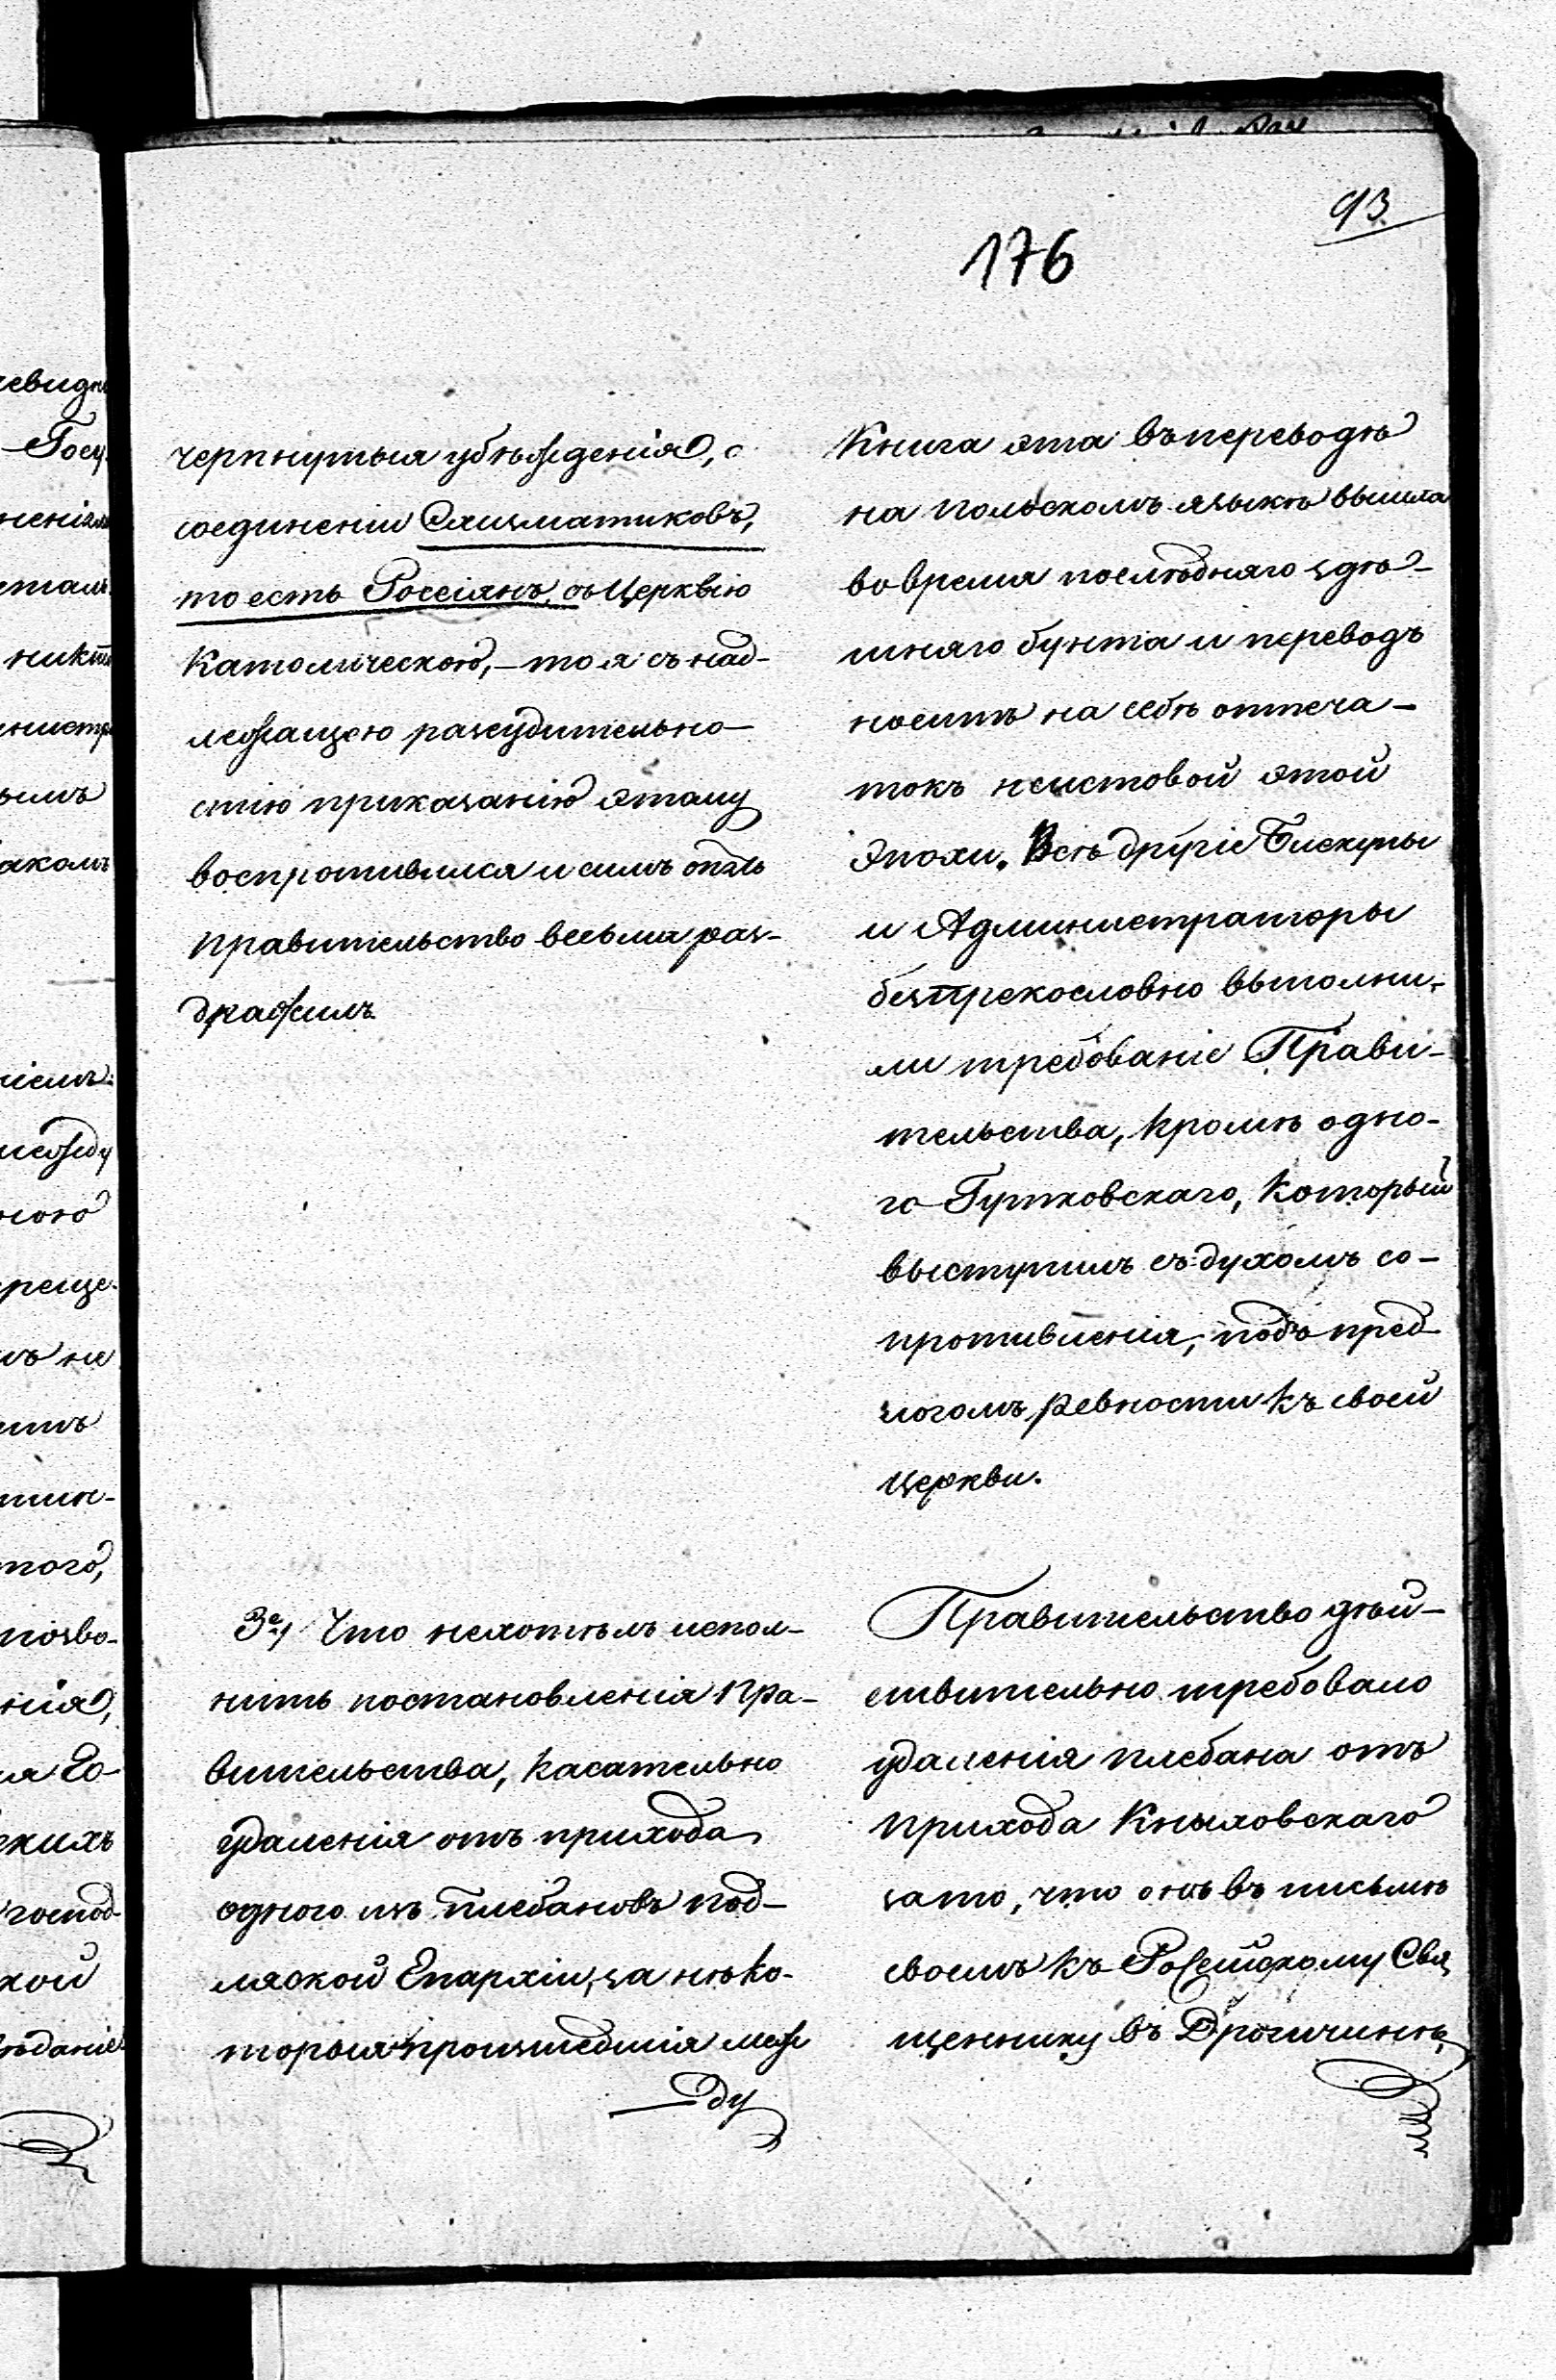 93.
176
черпнутыя убѣжденія, о
соединеніи Схизматиковъ,
то есть Россіянъ, съ Церквію
Католическою, – то я съ над-
лежащею разсудительно-
стію приказанію этому
воспротивился и симъ опять
правительство весьма раз-
дражилъ.
3е) Что нехотѣлъ испол-
нить постановленія Пра-
вительства, касательно
удаленія отъ прихода
одного изъ плебановъ Под-
ляской Епархіи, за нѣко-
торыя произшедшія меж
ду
Книга эта въ переводѣ
на польскомъ языкѣ вышла
во время послѣдняго здѣ-
шняго бунта и переводъ
носитъ на себѣ отпеча-
токъ неистовой этой
эпохи. Всѣ другіе Бискупы
и Администраторы
безпрекословно выполни-
ли требованіе Прави-
тельства, кромѣ одно-
го Гутковскаго, который
выступилъ съ духомъ со-
противленія, подъ пред
логомъ ревности къ своей
церкви.
Правительство дѣй-
ствительно требовало
удаленія плебана отъ
прихода Кныховскаго
зато, что онъ въ письмѣ
своемъ къ Россійскому Свя
щеннику въ Дрогичинѣ,